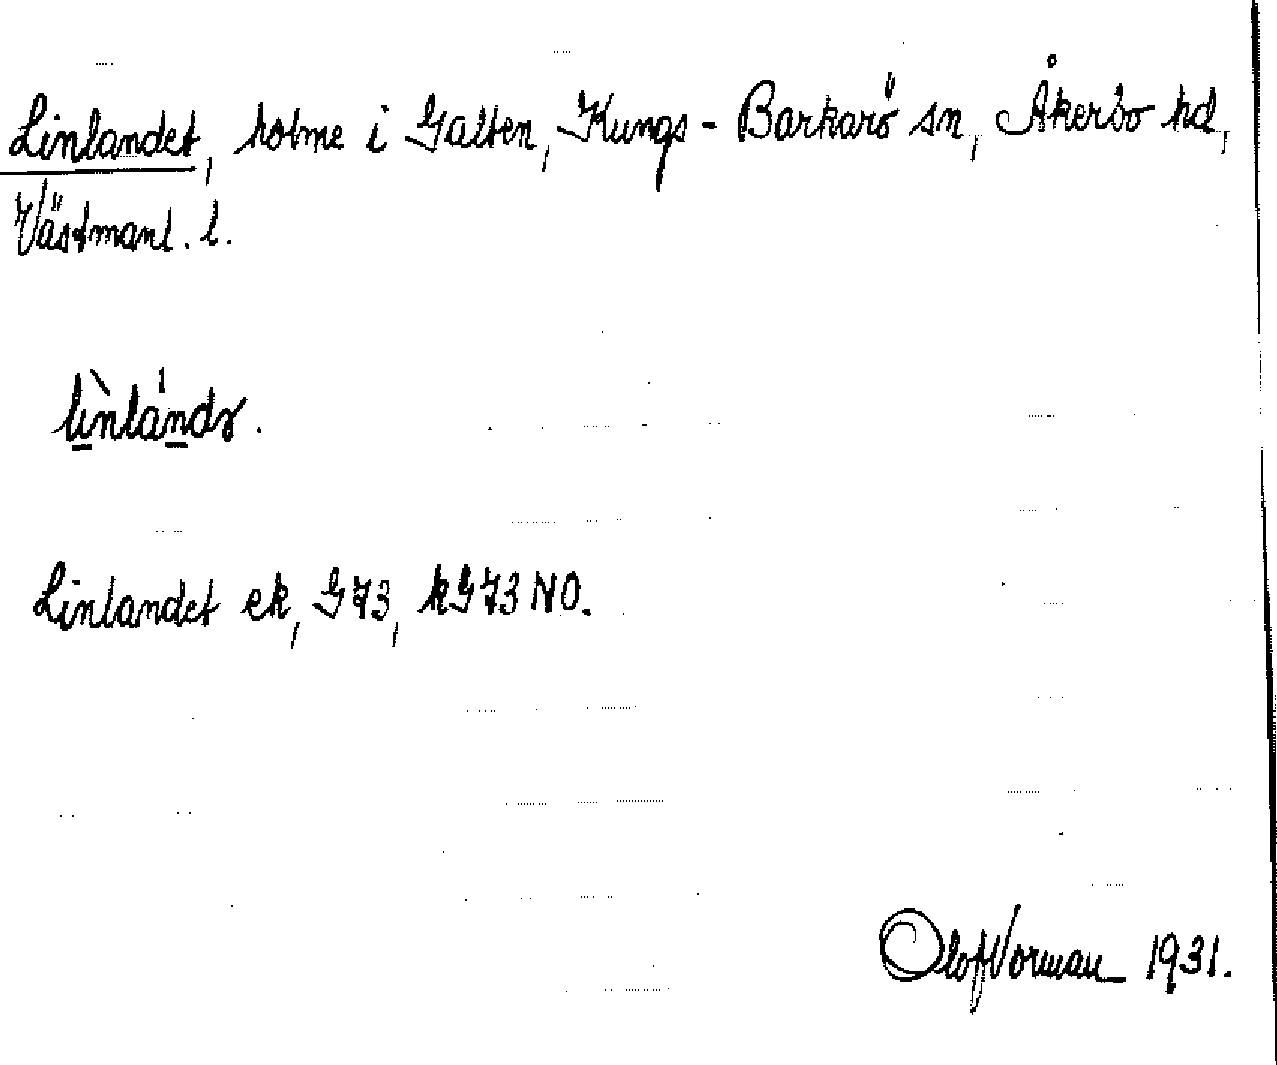 Linlandet, holme i Galten, Kungs-Barkarö sn, Åkerbo hd,
Västmanl. l.
Linlandet ek, G73, kG73NO.
Olof Vorman 1931.